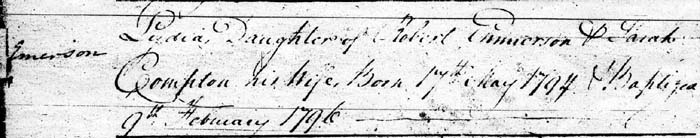 Lydia, Daughter of Robert Emmerson & Sarah
Emerson
Compton his Wife, Born 17th May 1794 & Baptized
9th February 1796